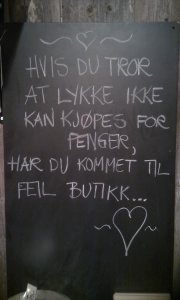 HVIS DU TROR
AT LYKKE IKKE
KAN KJØPES FOR
PENGER,
HAR DU KOMMET TIL
FEIL BUTIKK...